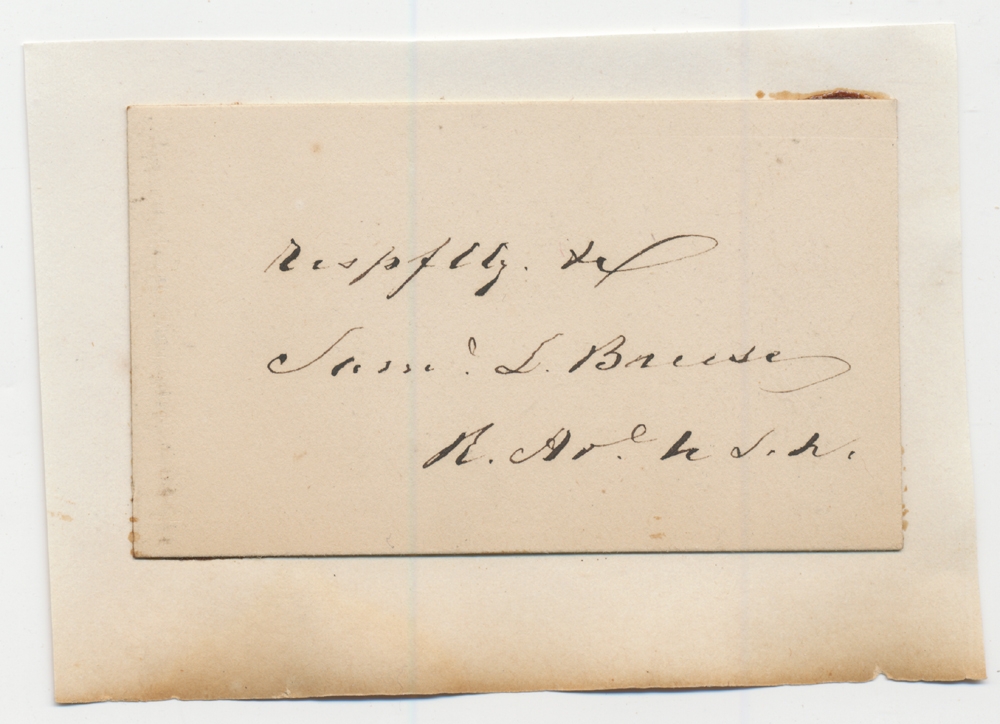 respflly. &c
Saml. L. Breese
R. Adl. U.S.N.